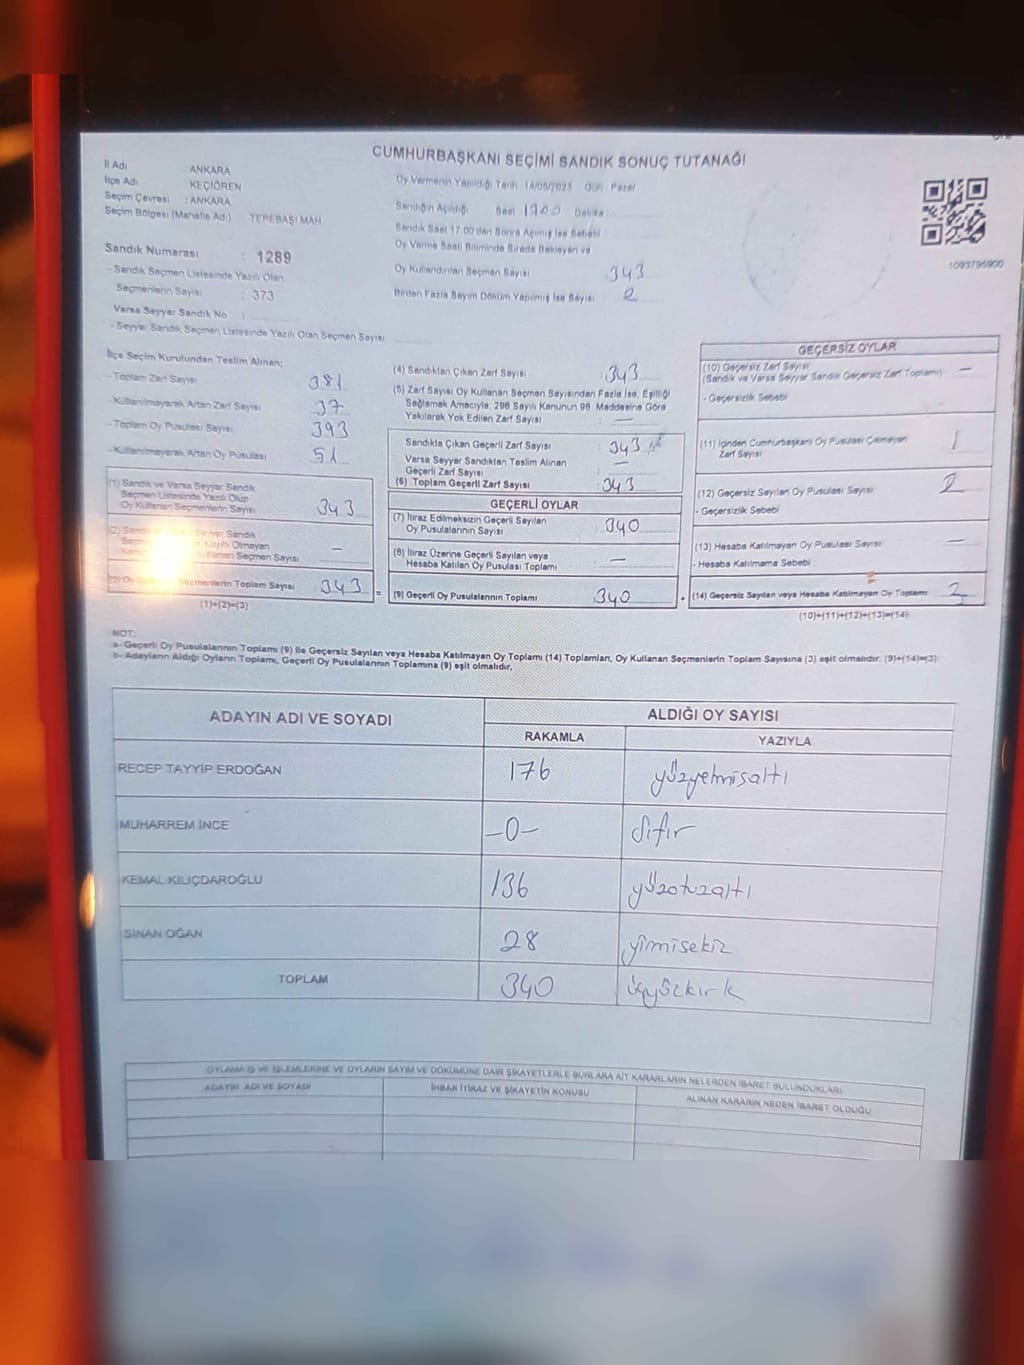 CUMHURBAŞKANI SEÇİMİ SANDIK SONUÇ TUTANAĞI
İl Adı : ANKARA
İlçe Adı : KEÇİÖREN
Seçim Çevresi : ANKARA
Seçim Bölgesi (Mahalle Adı) TEPEBAŞI MAH
Sandık Numarası : 1289
- Sandık Seçmen Listesinde Yazılı Olan
Seçmenlerin Sayısı : 373
Varsa Seyyar Sandık No :
- Seyyar Sandık Seçmen Listesinde Yazılı Olan Seçmen Sayısı
Oy Vermenin Yapıldığı Tarih 14/05/2023 Gün Pazar
Sandığın Açıldığı Saat 1700 Dakika
Sandık Saat 17:00'den Sonra Açılmış İse Sebebi
Oy Verme Saati Bitiminde Sırada Bekleyen ve
Oy Kullandırılan Seçmen Sayısı 343
Birden Fazla Sayım Döküm Yapılmış İse Sayısı : 2
1093795900
İlçe Seçim Kurulundan Teslim Alınan;
- Toplam Zarf Sayısı 381
- Kullanılmayarak Artan Zarf Sayısı 37
- Toplam Oy Pusulası Sayısı 393
- Kullanılmayarak Artan Oy Pusulası 51
(1) Sandık ve Varsa Seyyar Sandık
Seçmen Listesinde Yazılı Olup
Oy Kullanan Seçmenlerin Sayısı 343
Sandık
Olmayan
Seçmen Sayısı : —
Seçmenlerin Toplam Sayısı 343
(1)+(2)=(3)
(4) Sandıktan Çıkan Zarf Sayısı : 343
(5) Zarf Sayısı Oy Kullanan Seçmen Sayısından Fazla İse, Eşitliği
Sağlamak Amacıyla, 298 Sayılı Kanunun 98. Maddesine Göre
Yakılarak Yok Edilen Zarf Sayısı : —
Sandıkta Çıkan Geçerli Zarf Sayısı : 343
Varsa Seyyar Sandıktan Teslim Alınan
Geçerli Zarf Sayısı : —
(6) Toplam Geçerli Zarf Sayısı : 343
GEÇERLİ OYLAR
(7) İtiraz Edilmeksizin Geçerli Sayılan
Oy Pusulalarının Sayısı : 340
(8) İtiraz Üzerine Geçerli Sayılan veya
Hesaba Katılan Oy Pusulası Toplamı : —
= (9) Geçerli Oy Pusulalarının Toplamı 340
GEÇERSİZ OYLAR
(10) Geçersiz Zarf Sayısı
(Sandık ve Varsa Seyyar Sandık Geçersiz Zarf Toplamı) —
- Geçersizlik Sebebi
(11) İçinden Cumhurbaşkanı Oy Pusulası Çıkmayan
Zarf Sayısı 1
(12) Geçersiz Sayılan Oy Pusulası Sayısı 2
- Geçersizlik Sebebi
(13) Hesaba Katılmayan Oy Pusulası Sayısı —
- Hesaba Katılmama Sebebi
+ (14) Geçersiz Sayılan veya Hesaba Katılmayan Oy Toplamı
(10)+(11)+(12)+(13)=(14)
NOT:
a- Geçerli Oy Pusulalarının Toplamı (9) ile Geçersiz Sayılan veya Hesaba Katılmayan Oy Toplamı (14) Toplamları, Oy Kullanan Seçmenlerin Toplam Sayısına (3) eşit olmalıdır. (9)+(14)=(3)
b- Adayların Aldığı Oyların Toplamı, Geçerli Oy Pusulalarının Toplamına (9) eşit olmalıdır.
ADAYIN ADI VE SOYADI ALDIĞI OY SAYISI
RAKAMLA YAZIYLA
RECEP TAYYİP ERDOĞAN 176 yüzyetmişaltı
MUHARREM İNCE -0- sıfır
KEMAL KILIÇDAROĞLU 136 yüzotuzaltı
SİNAN OĞAN 28 yimisekiz
TOPLAM 340 üçyüzkırk
OYLAMA İŞ VE İŞLEMLERİNE VE OYLARIN SAYIM VE DÖKÜMÜNE DAİR ŞİKAYETLERLE BUNLARA AİT KARARLARIN NELERDEN İBARET BULUNDUKLARI
ADAYIN ADI VE SOYADI İHBAR İTİRAZ VE ŞİKAYETİN KONUSU ALINAN KARARIN NEDEN İBARET OLDUĞU